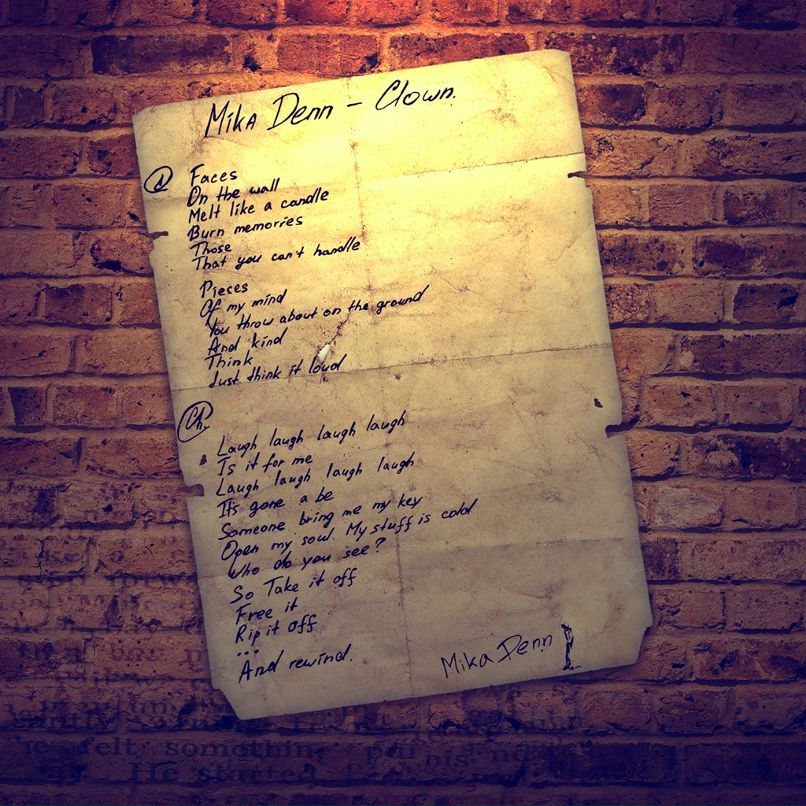 Mika Denn - Clown.
1 Faces
On the wall
Melt like a candle
Burn memories
Those
That you can't handle
Pieces
Of my mind
You throw about on the ground
And kind
Think
Just think it loud
Ch.
Laugh laugh laugh laugh
Is it for me
Laugh laugh laugh laugh
It's gone a be
Someone bring me my key
Open my soul. My stuff is cold
Who do you see?
So Take it off
Free it
Rip it off
...
And rewind.
Mika Denn
felt something his
He started